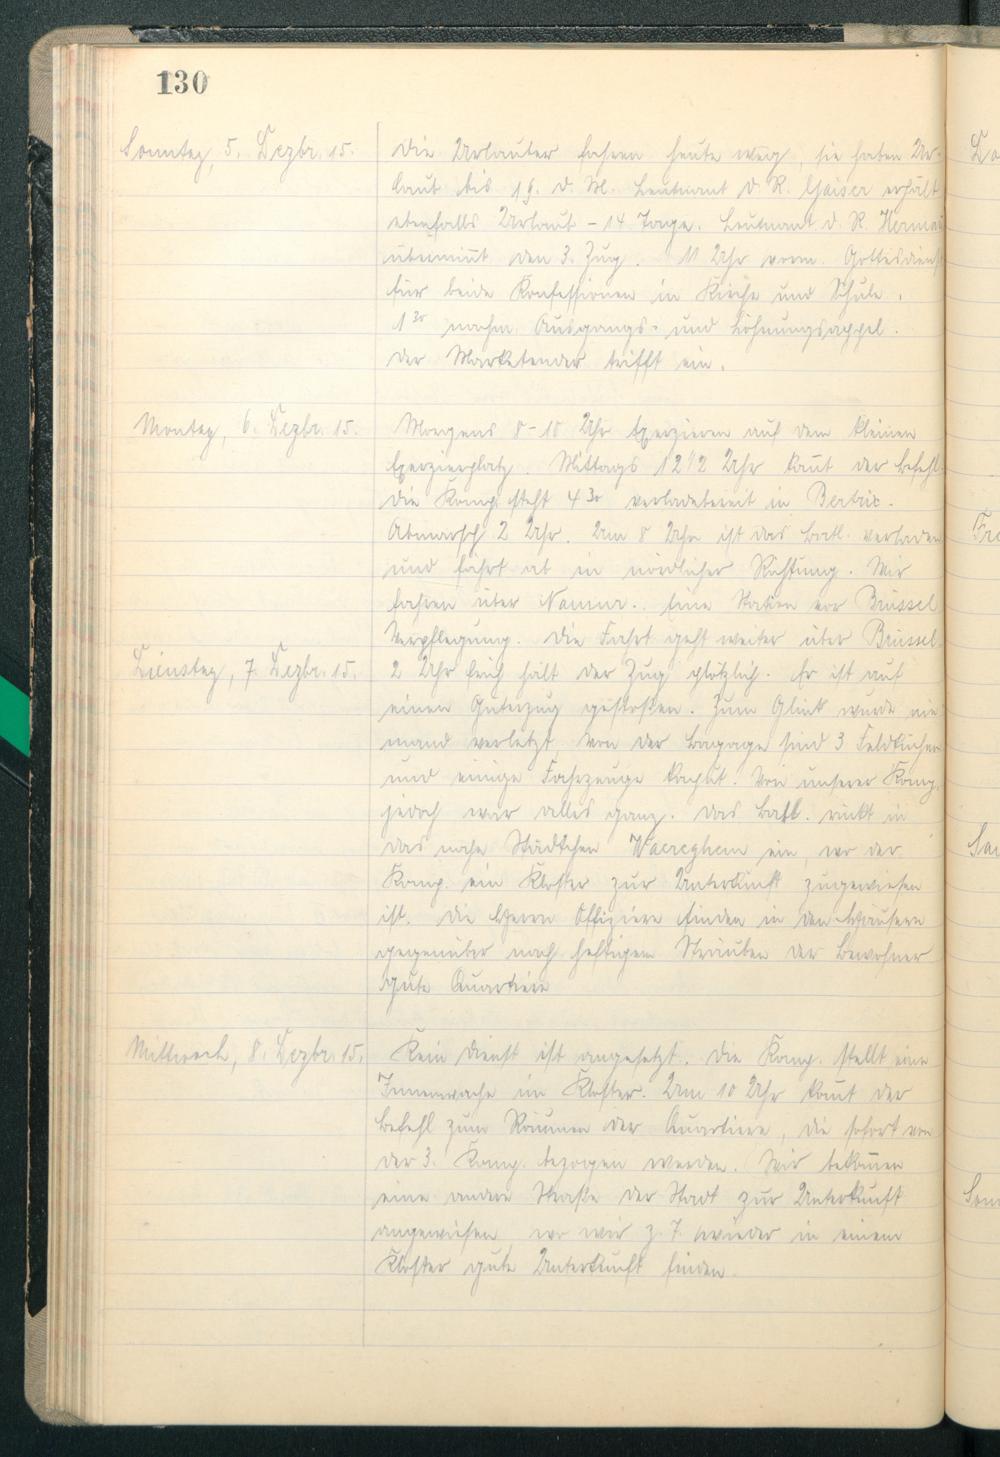 130
Sonntag, 5. Dezbr. 15.
Die Urlauber fahren heute weg, sie haben Ur-
laub bis 19. d. M. Leutnant d. R. Gaiser erhält
ebenfalls Urlaub – 14 Tage. Leutnant d. R.
übernimmt den 3. Zug. 11 Uhr vorm. Gottesdienst
für beide Konfessionen in Kirche und Schule.
1³⁰ nachm. Ausgangs- und Löhnungsappel.
Der Marketender trifft ein.
Montag, 6. Dezbr. 15.
Morgens 8–10 Uhr Exerzieren auf dem kleinen
Exerzierplatz. Mittags 12 1/2 Uhr kam̄t der Befehl:
Die Komp. steht 4³⁰ verladebereit in Bertrix.
Abmarsch 2 Uhr. Um 8 Uhr ist das Batl. verladen
und fährt ab in nördlicher Richtung. Wir
fahren über Namur. Eine Station vor Brüssel
Verpflegung. Die Fahrt geht weiter über Brüssel.
Dienstag, 7. Dezbr. 15.
2 Uhr früh hält der Zug plötzlich. Er ist auf
einen Güterzug gestoßen. Zum Glück wurde nie
mand verletzt, von der Bagage sind 3 Feldküchen
und einige Fahrzeuge kaputt. Von unserer Komp.
jedoch war alles ganz. Das Batl. rückt in
das nahe Städtchen Waereghem ein, wo der
Komp. ein Kloster zur Unterkunft zugewiesen
ist. Die Herrn Offiziere finden in den Häusern
gegenüber nach heftigem Sträuben der Bewohner
gute Quartiere
Mittwoch, 8. Dezbr. 15.
Kein Dienst ist angesetzt. Die Komp. stellt eine
Innenwache im Kloster. Um 10 Uhr kom̄t der
Befehl zum Räumen der Quartiere, die sofort von
der 3. Komp. bezogen werden. Wir bekom̄en
eine andere Straße der Stadt zur Unterkunft
angewiesen wo wir z. T. wieder in einem
Kloster gute Unterkunft finden.